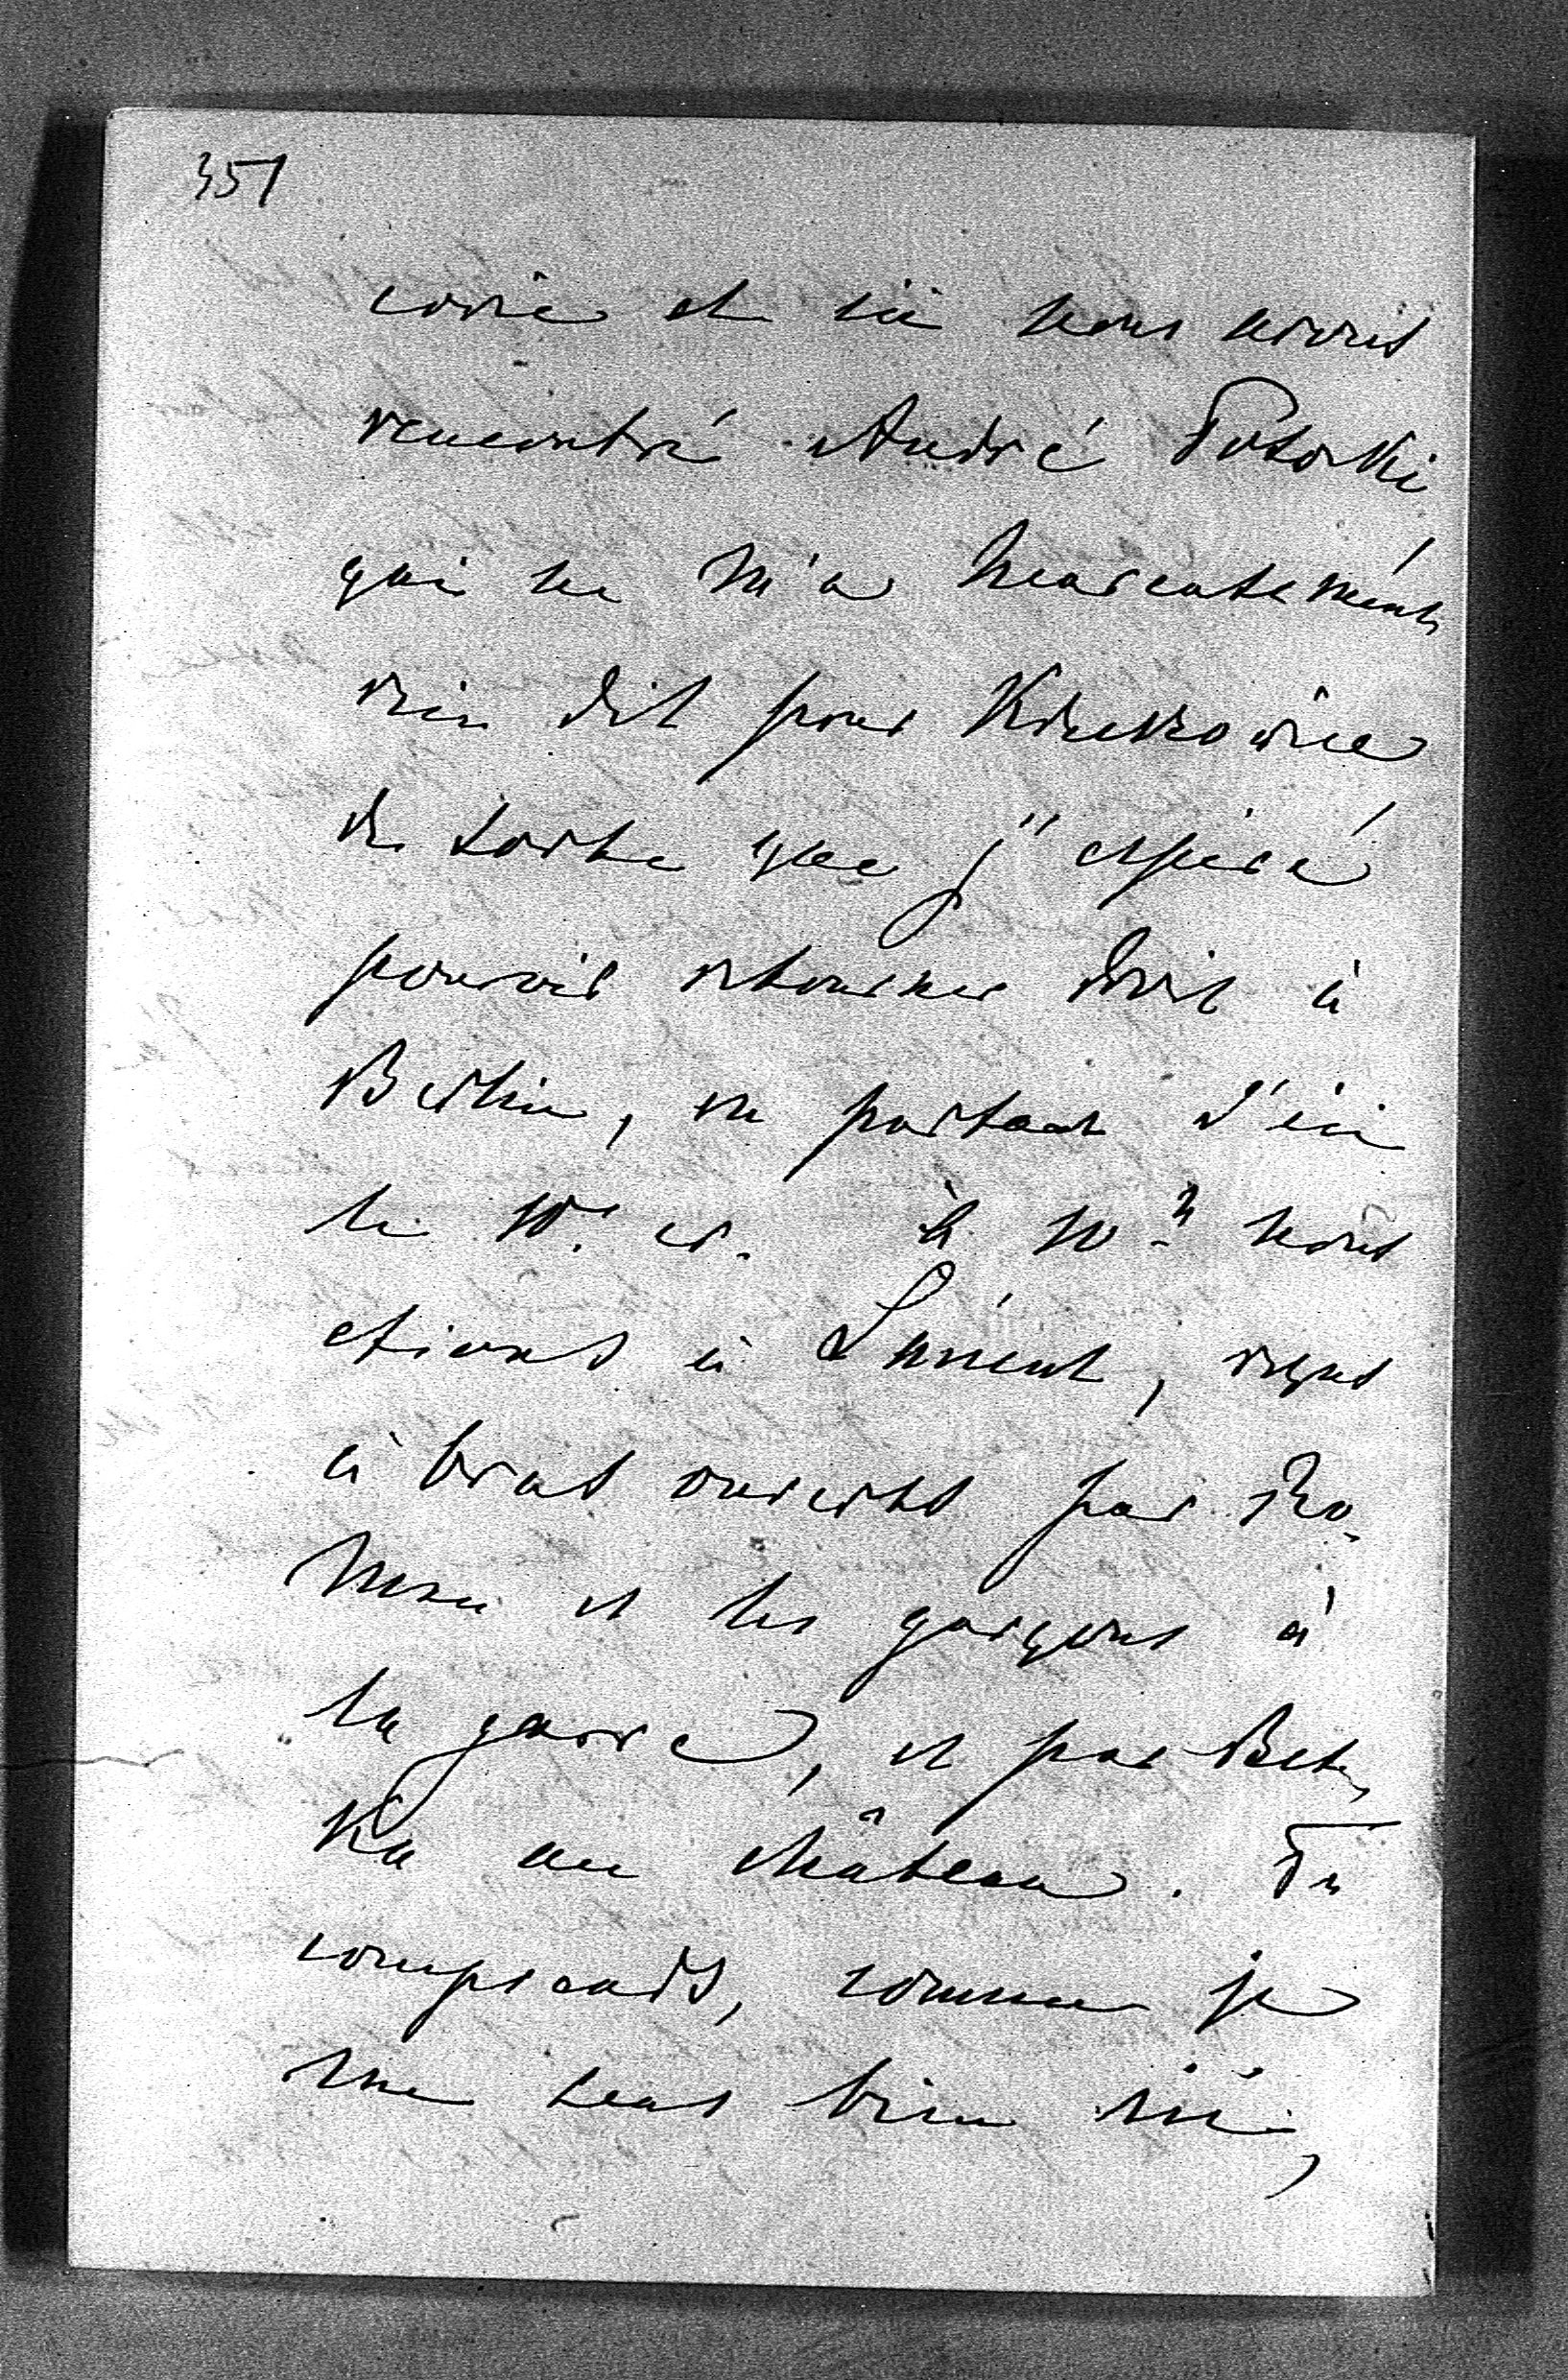 351
covie et ici nous avons
rencontré André Potocki
qui ne m'a heureusement
rien dit pour Krzeszowice
de sorte que j'espère
pouvoir retourner droit à
Berlin, en partant d'ici
le 10. cr. à 10 h nous
etions à Lancut, reçus
à bras ouverts par Ro-
man et les garçons à
la garre, et par Bet-
ka au château. Tu
comprends, comme je
me sens bien ici,